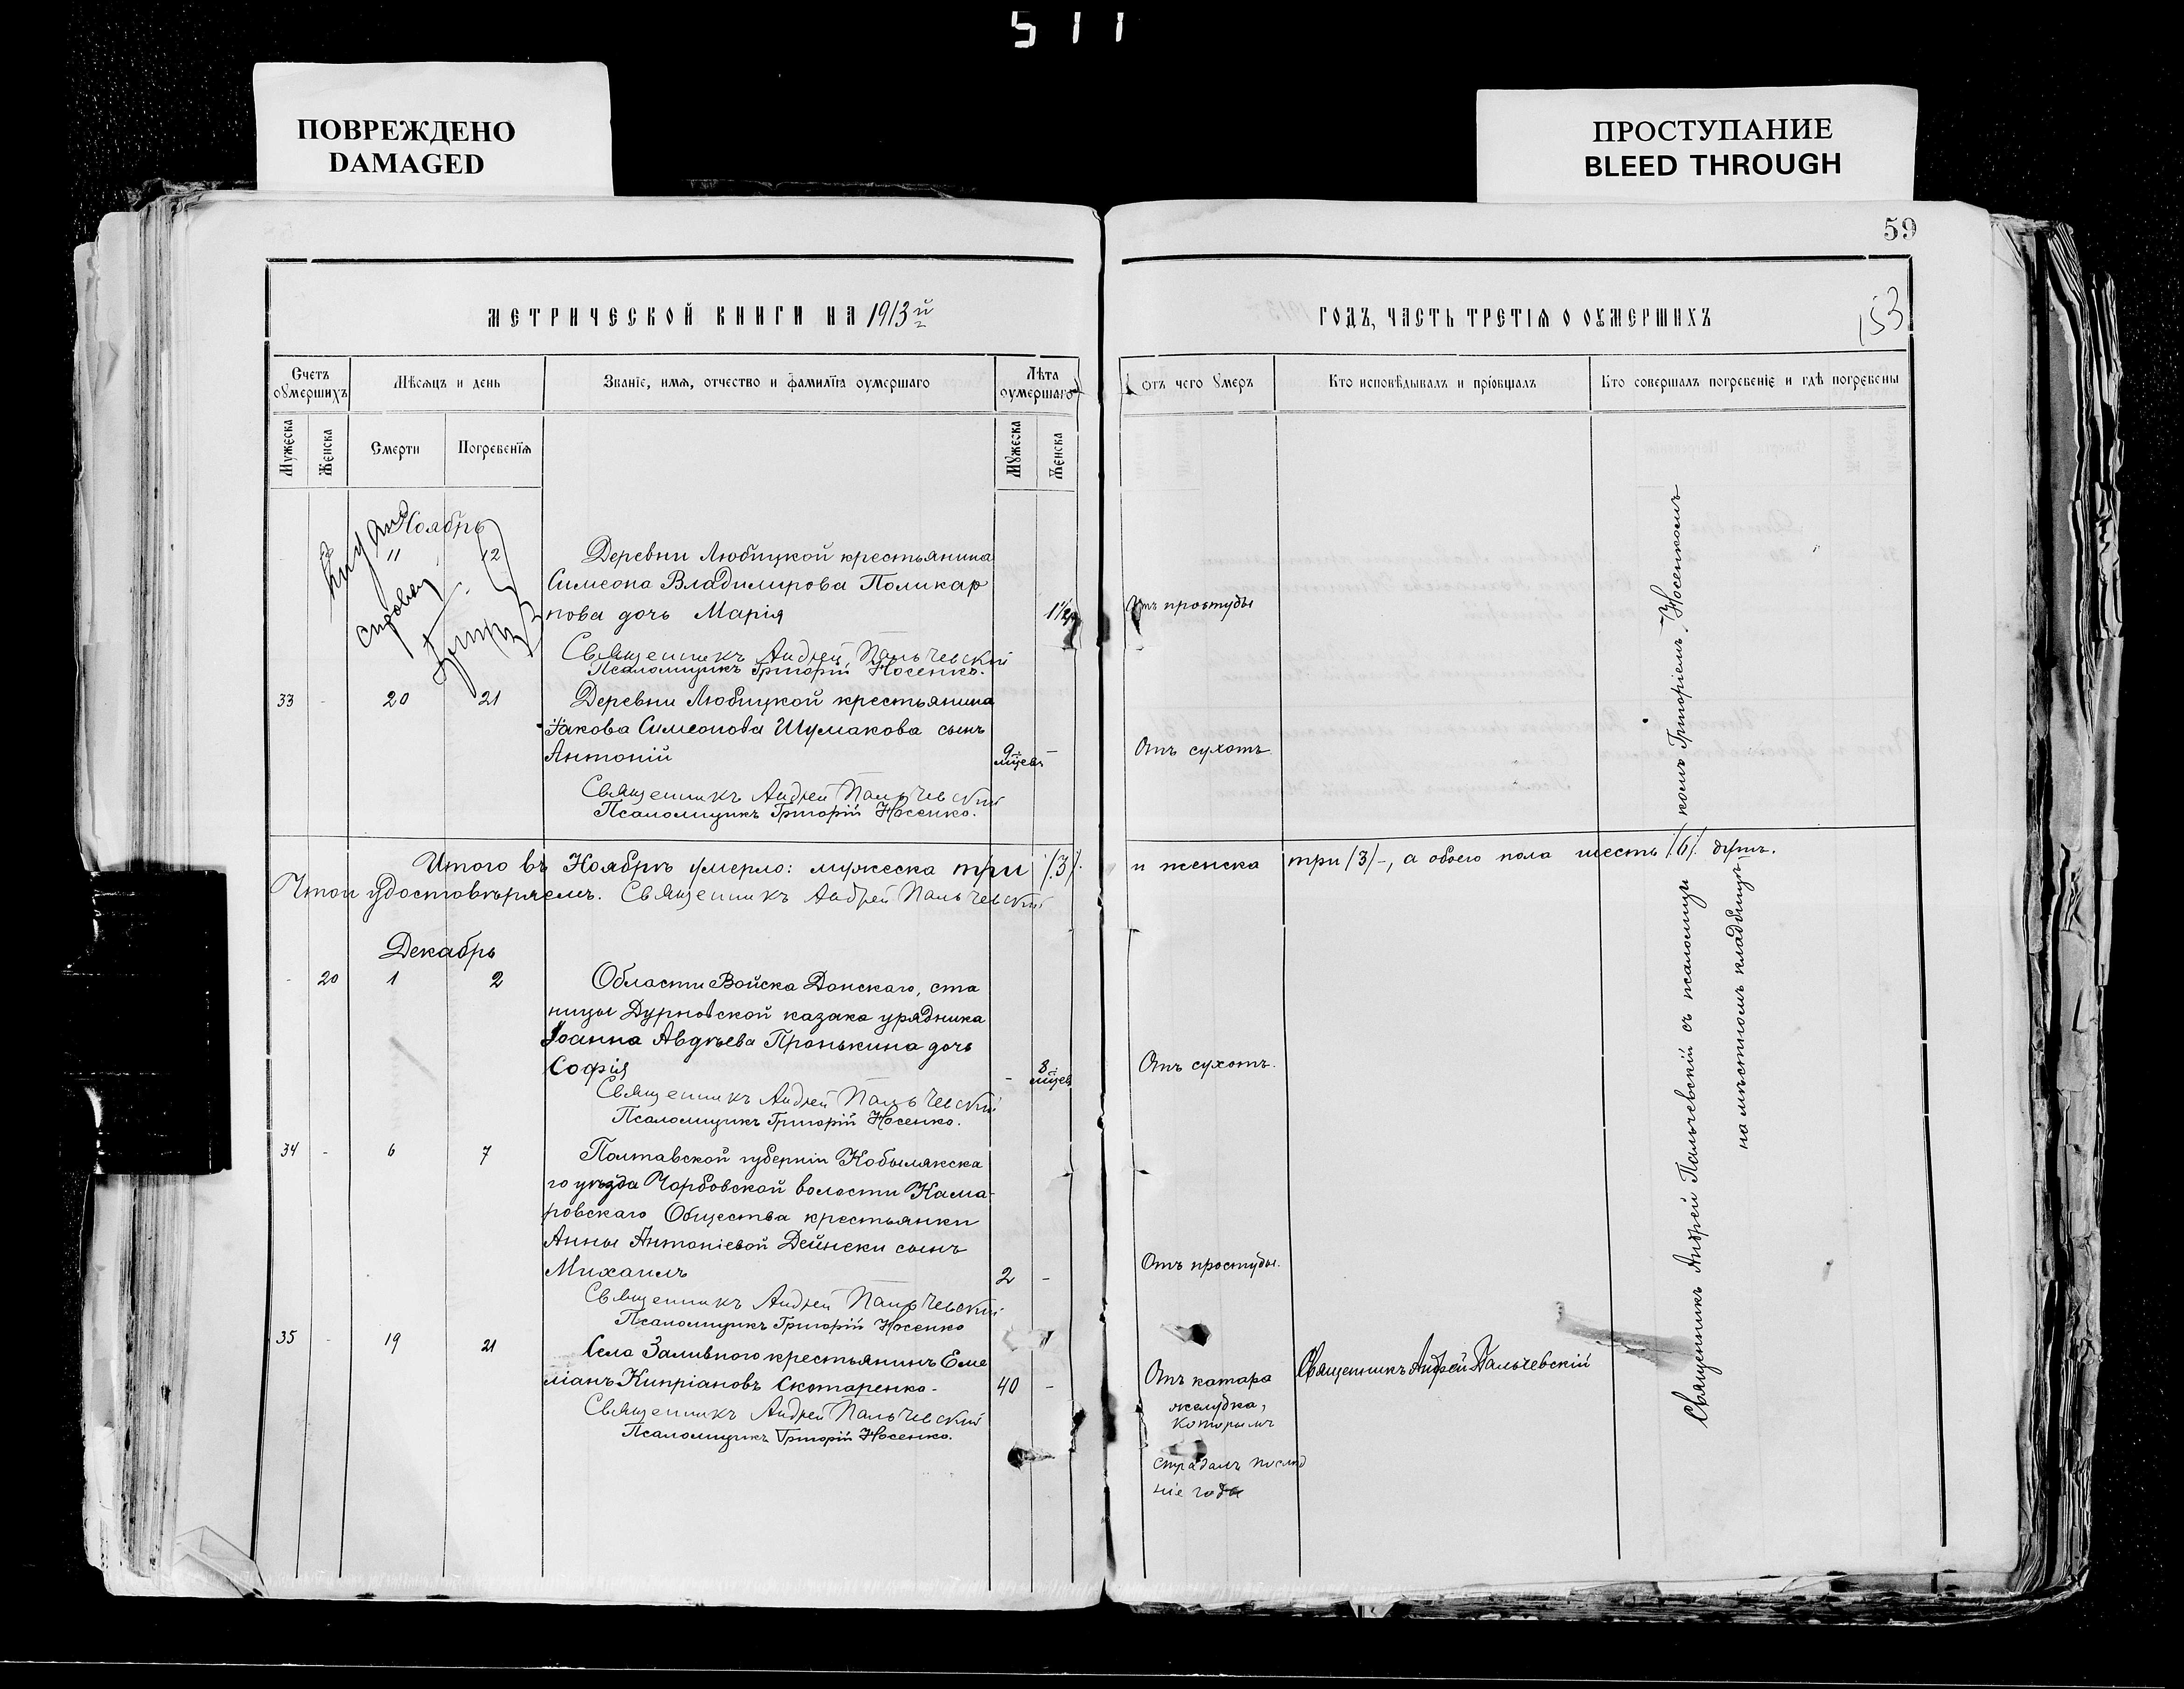 511
ПОВРЕЖДЕНО
DAMAGED
ПРОСТУПАНИЕ
BLEED THROUGH
59
153
МЕТРИЧЕСКОЙ КНИГИ НА 1913 й
ГОДЪ, ЧАСТЬ ТРЕТІѦ О ОУМЕРШИХЪ
Счетъ оумершихъ
Мѣсѧцъ и день
Званіе, имѧ, отчество и фамиліѧ оумершаго
Лѣта оумершаго
Отъ чего умеръ
Кто исповѣдывалъ и пріобщалъ
Кто совершалъ погребеніе и гдѣ погребены
Мужеска
Женска
Смерти
Погребеніѧ
Мужеска
Женска
Ноябрь
11 12 Деревни Любицкой крестьянина
Симеона Владимирова Поликар
пова дочь Марія
1 1/2
Отъ простуды
Священникъ Андрей Пальчевскій
Псаломщикъ Григорій Носенко.
33 - 20 21 Деревни Любицкой крестьянина
Іакова Симеонова Шумакова сынъ
Антоній
9 мцевъ -
Отъ сухотъ.
Священникъ Андрей Пальчевскій
Псаломщикъ Григорій Носенко.
Итого въ Ноябрѣ умерло: мужеска три /3/. и женска три /3/-, а обоего пола шесть /6/. душъ.
Что и удостовѣряемъ. Священникъ Андрей Пальчевскій
Декабрь
- 20 1 2 Области Войска Донскаго, ста
ницы Дурновской казака урядника
Іоанна Авдѣева Пронькина дочь
Софія
- 3 мцев
Отъ сухотъ.
Священникъ Андрей Пальчевскій
Псаломщикъ Григорій Носенко.
34 - 6 7 Полтавской губерніи Кобылякска
го уѣзда Чорбовской волости Кама-
ровскаго Общества крестьянки
Анны Антоніевой Дейнеки сынъ
Михаилъ
2 -
Отъ простуды.
Священникъ Андрей Пальчевскій
Псаломщикъ Григорій Носенко
35 - 19 21 Села Заливного крестьянинъ Еме
ліанъ Кипріановъ Скотаренко.
40 -
Отъ катара
желудка,
которымъ
страдалъ послѣд
ніе годы
Священникъ Андрей Пальчевскій
Священникъ Андрей Пальчевскій
Псаломщикъ Григорій Носенко.
Священникъ Андрей Пальчевскій съ псаломщикомъ Григоріемъ Носенкомъ
на мѣстномъ кладбищѣ